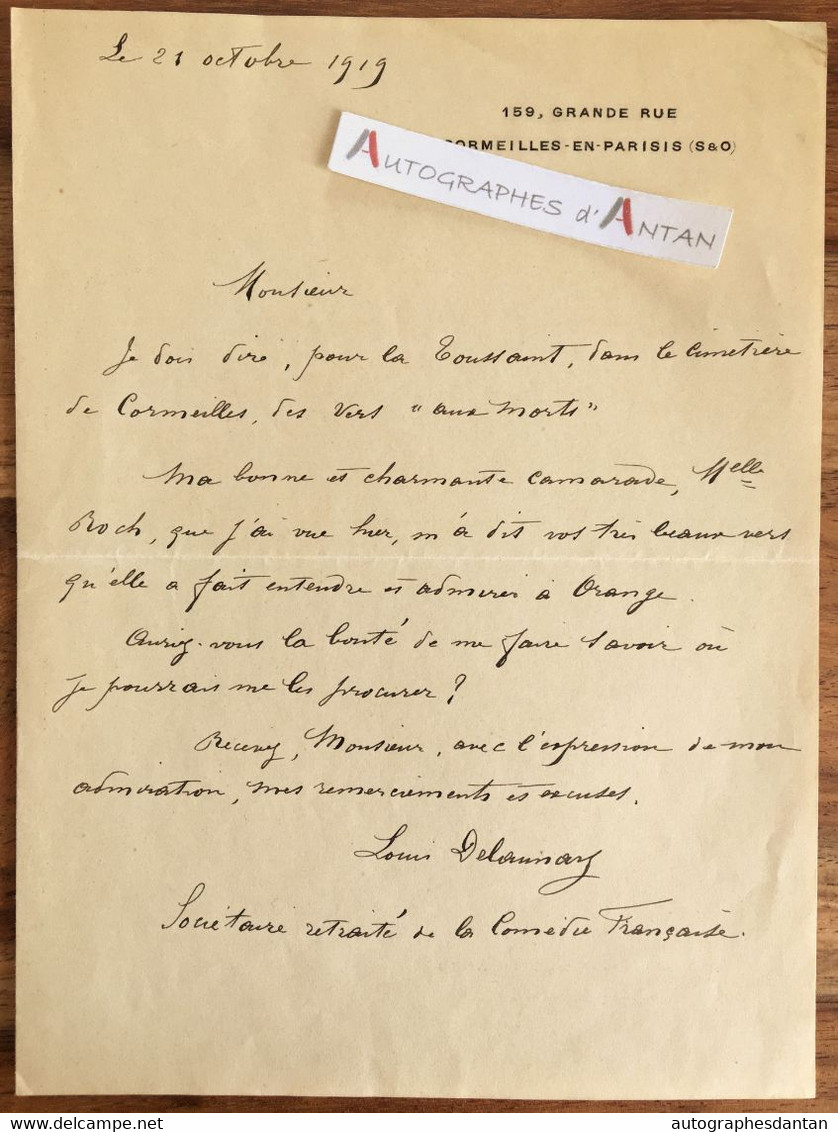 Le 21 octobre 1919
159, GRANDE RUE
CORMEILLES-EN-PARISIS (S&O)
AUTOGRAPHES d'ANTAN
Monsieur
Je dois dire, pour la Toussaint, dans le Cimetière
de Cormeilles, des vers "aux morts"
Ma bonne et charmante camarade, Melle
Roch, que j'ai vue hier, m'a dit vos très beaux vers
qu'elle a fait entendre et admirer à Orange.
Auriez-vous la bonté de me faire savoir où
je pourrais me les procurer?
Recevez, Monsieur, avec l'expression de mon
admiration, mes remerciements et excuses.
Louis Delaunay
Sociétaire retraité de la Comédie Française.
delcampe.net
autographesdantan